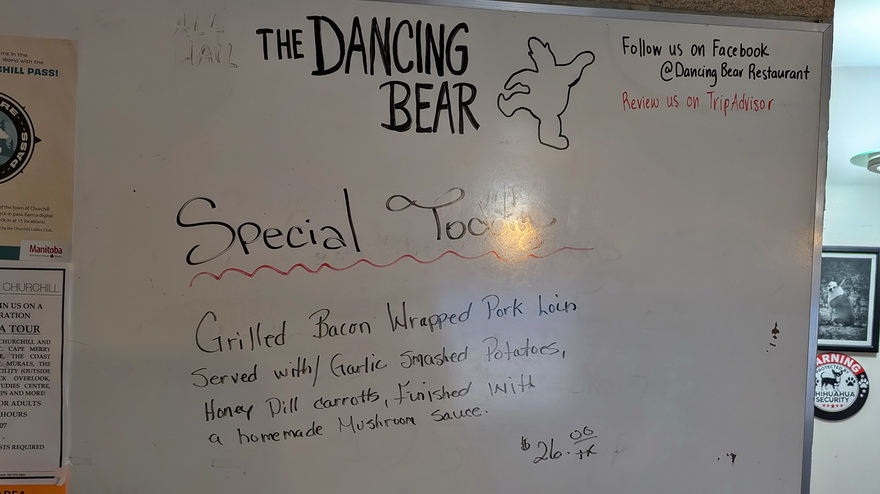 THE DANCING
BEAR
Follow us on Facebook
@Dancing Bear Restaurant
Review us on TripAdvisor
Special Today
Grilled Bacon Wrapped Pork Loin
Served with/ Garlic Smashed Potatoes,
Honey Dill carrotts, finished with
a homemade Mushroom sauce.
$26.00
+x
CHILL PASS!
PASS
Manitoba
CHURCHILL
IN US ON A
RATION
A TOUR
CHURCHILL AND
CAPE MERRY
THE COAST
MURALS, THE
CILITY (OUTSIDE
CK OVERLOOK,
TUDIES CENTRE,
PS AND MORE!
OR ADULTS
HOURS
07
STS REQUIRED
AREA
WARNING
PROTECTED BY
CHIHUAHUA
SECURITY